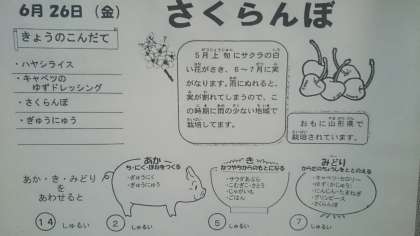 6月26日（金）
さくらんぼ
きょうのこんだて
・ハヤシライス
・キャベツの
ゆずドレッシング
・さくらんぼ
・ぎゅうにゅう
５月上旬にサクラの白
い花がさき、６～７月に実
がなります。雨にぬれると、
実が割れてしまうので、こ
の時期に雨の少ない地域で
栽培してます。
おもに山形県で
栽培されています。
あか・き・みどり
を
あわせると
14 しゅるい
あか
ち・にく・ほねをつくる
・ぎゅうにく
・ぎゅうにゅう
2 しゅるい
き
ねつやちからのもとになる
・サラダあぶら
・こむぎこ・さとう
・じゃがいも
・ごはん
5 しゅるい
みどり
からだのちょうしをととのえる
・キャベツ・セロリー
・ゆず（かじゅう）
・にんじん・たまねぎ
・グリンピース
・さくらんぼ
7 しゅるい